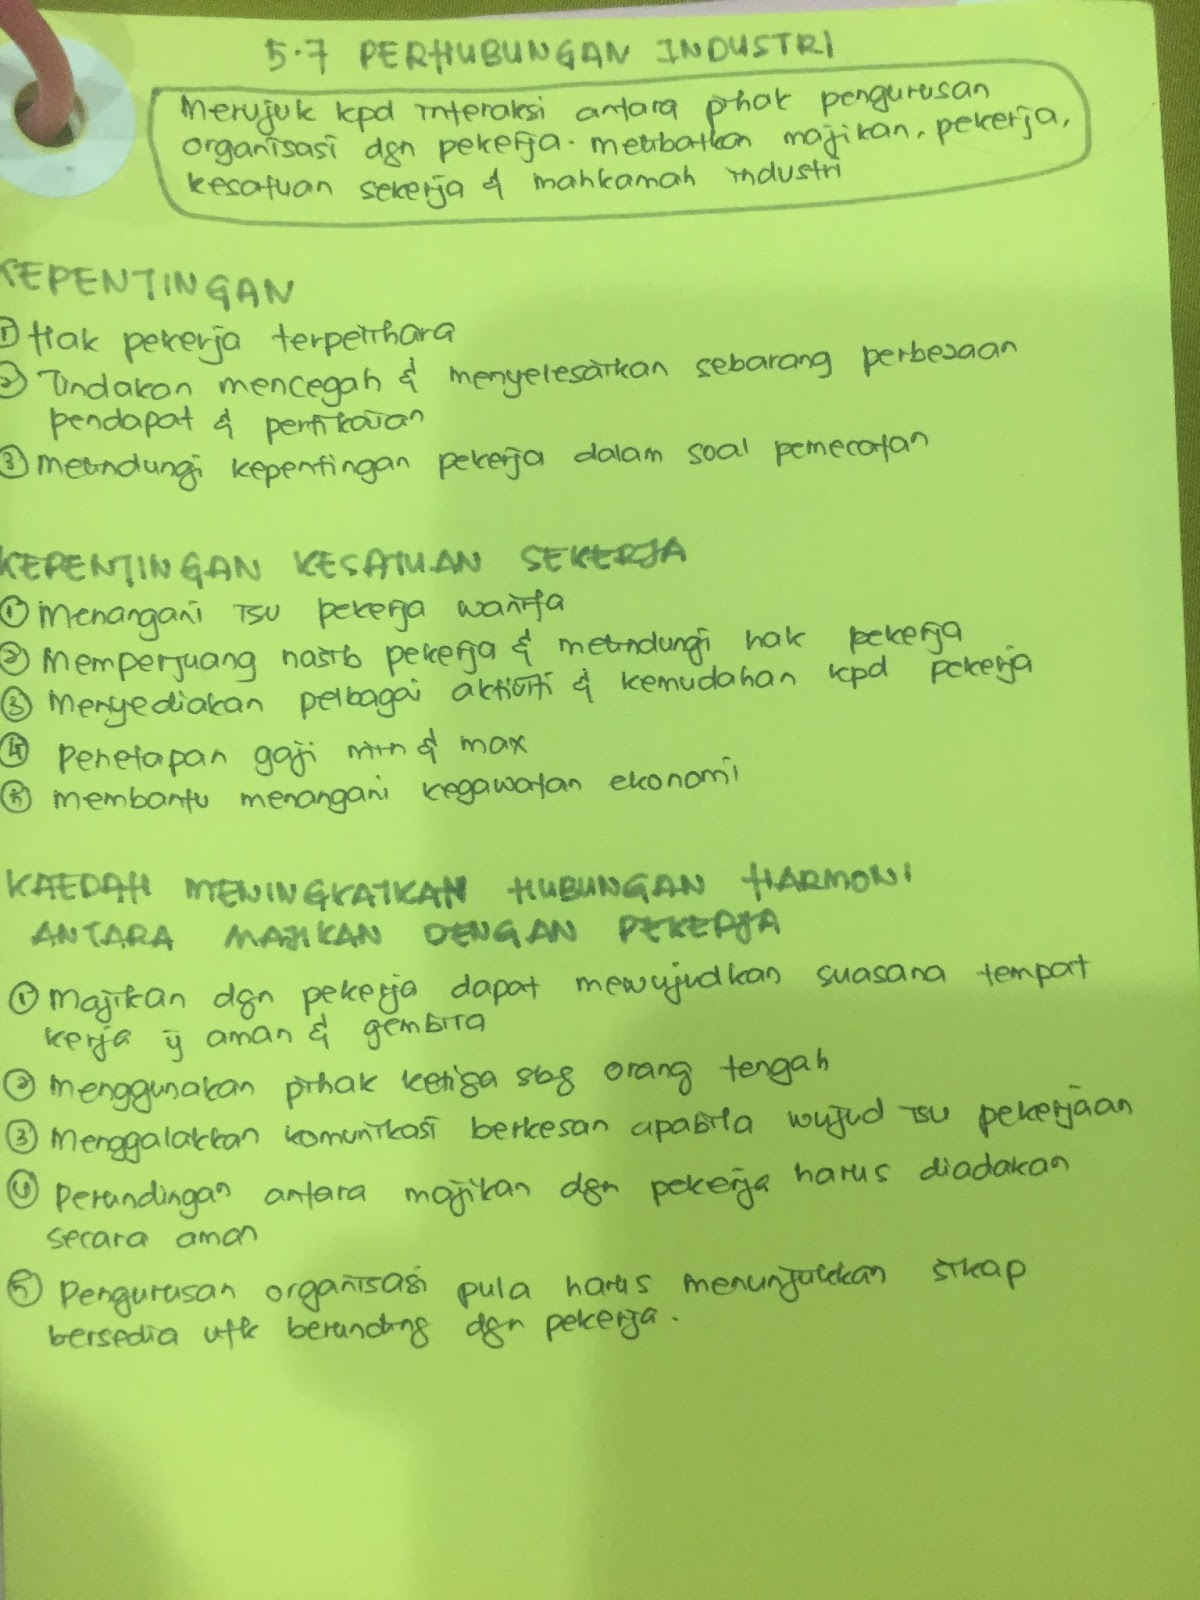 5.7 PERHUBUNGAN INDUSTRI
Merujuk kpd interaksi antara pihak pengurusan
organisasi dgn pekerja. melibatkan majikan, pekerja,
kesatuan sekerja & mahkamah industri
KEPENTINGAN
① Hak pekerja terpelihara
② Tindakan mencegah & menyelesaikan sebarang perbezaan
pendapat & pertikaian
③ melindungi kepentingan pekerja dalam soal pemecatan
KEPENTINGAN KESATUAN SEKERJA
① Menangani isu pekerja wanita
② Memperjuang nasib pekerja & melindungi hak pekerja
③ Menyediakan pelbagai aktiviti & kemudahan kpd pekerja
④ Penetapan gaji min & max
⑤ membantu menangani kegawatan ekonomi
KAEDAH MENINGKATKAN HUBUNGAN HARMONI
ANTARA MAJIKAN DENGAN PEKERJA
① Majikan dgn pekerja dapat mewujudkan suasana tempat
kerja yg aman & gembira
② Menggunakan pihak ketiga sbg orang tengah
③ Menggalakkan komunikasi berkesan apabila wujud isu pekerjaan
④ Perundingan antara majikan dgn pekerja harus diadakan
secara aman
⑤ Pengurusan organisasi pula harus menunjukkan sikap
bersedia utk berunding dgn pekerja.